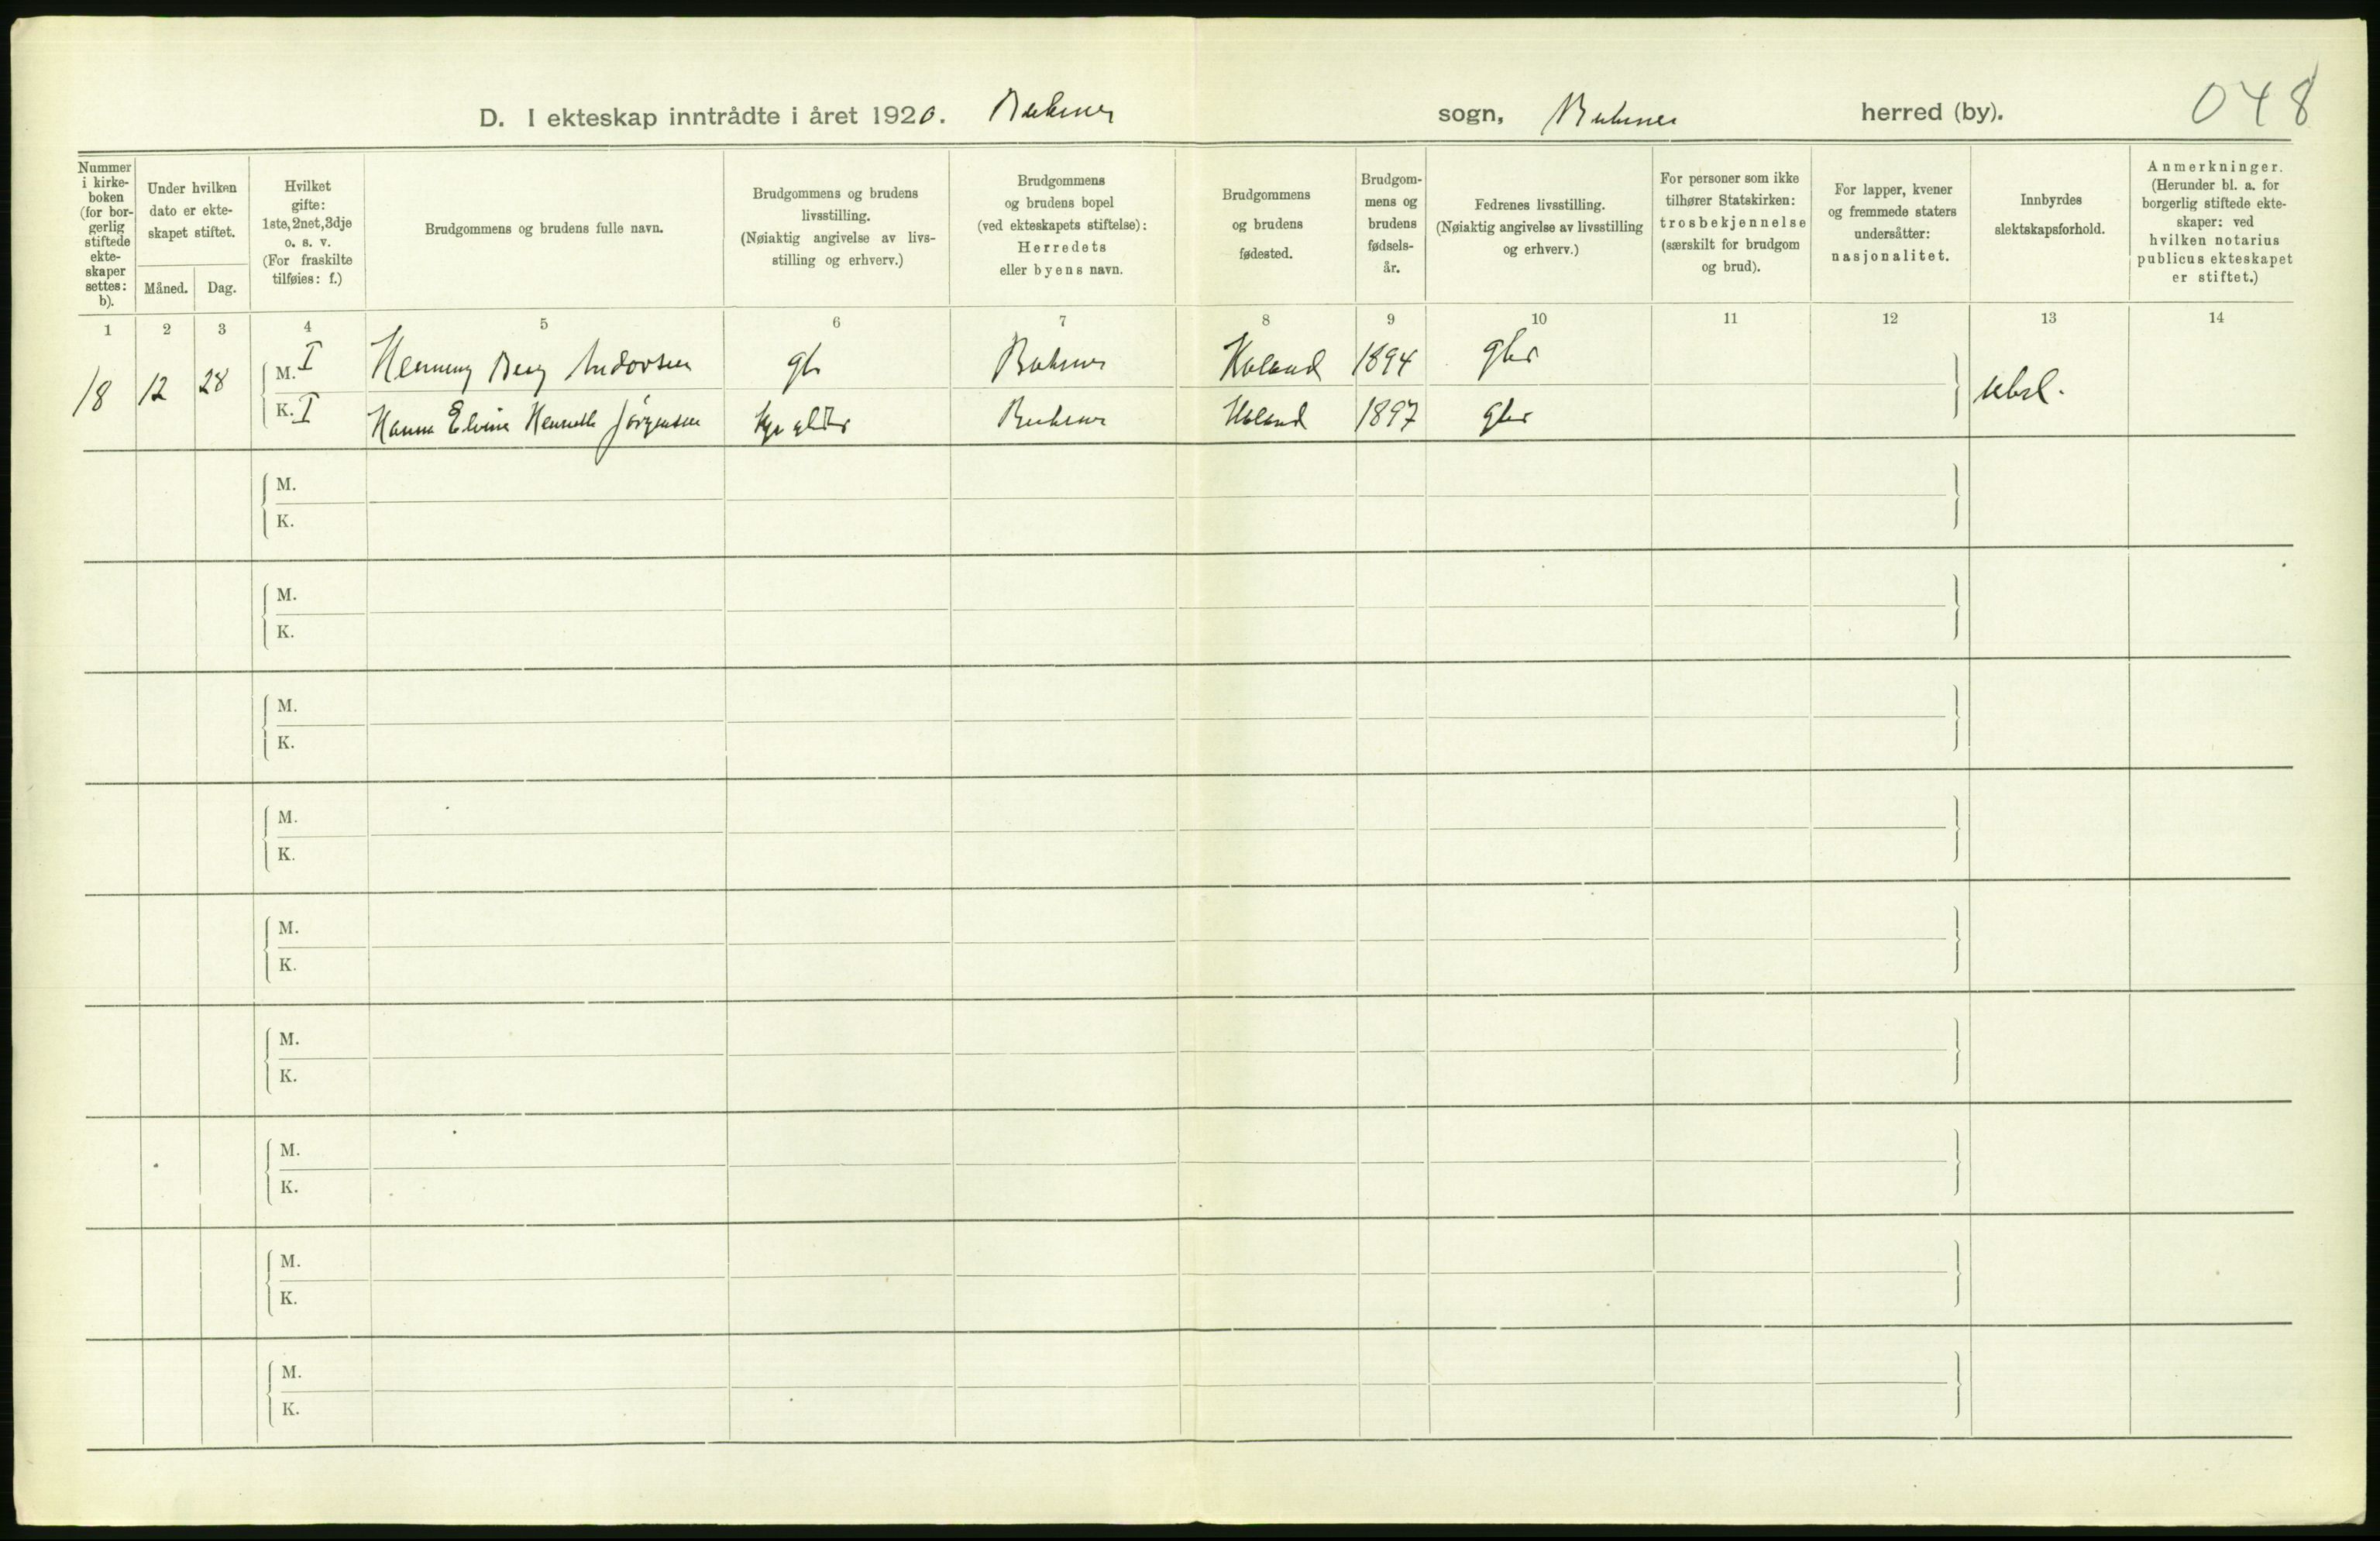 048
D. I ekteskap inntrådte i året 1920. Buksnes sogn, Buksnes herred (by).
Nummer i kirkeboken (for borgerlig stiftede ekteskaper settes: b).
Under hvilken dato er ekteskapet stiftet.
Måned. Dag.
Hvilket gifte: 1ste, 2net, 3dje o. s. v. (For fraskilte tilføies: f.)
Brudgommens og brudens fulle navn.
Brudgommens og brudens livsstilling. (Nøiaktig angivelse av livsstilling og erhverv.)
Brudgommens og brudens bopel (ved ekteskapets stiftelse): Herredets eller byens navn.
Brudgommens og brudens fødested.
Brudgommens og brudens fødselsår.
Fedrenes livsstilling. (Nøiaktig angivelse av livsstilling og erhverv.)
For personer som ikke tilhører Statskirken: trosbekjennelse (særskilt for brudgom og brud).
For lapper, kvener og fremmede staters undersåtter: nasjonalitet.
Innbyrdes slektskapsforhold.
Anmerkninger. (Herunder bl. a. for borgerlig stiftede ekteskaper: ved hvilken notarius publicus ekteskapet er stiftet.)
1 2 3 4 5 6 7 8 9 10 11 12 13 14
18 12 28 M. I Henning Berg Andorsen gbr Buksnes Holand 1894 gbr ubsl.
K. I Hanna Elvine Henriette Jörgensen Buksnes Holand 1897 gbr
M.
K.
M.
K.
M.
K.
M.
K.
M.
K.
M.
K.
M.
K.
M.
K.
M.
K.